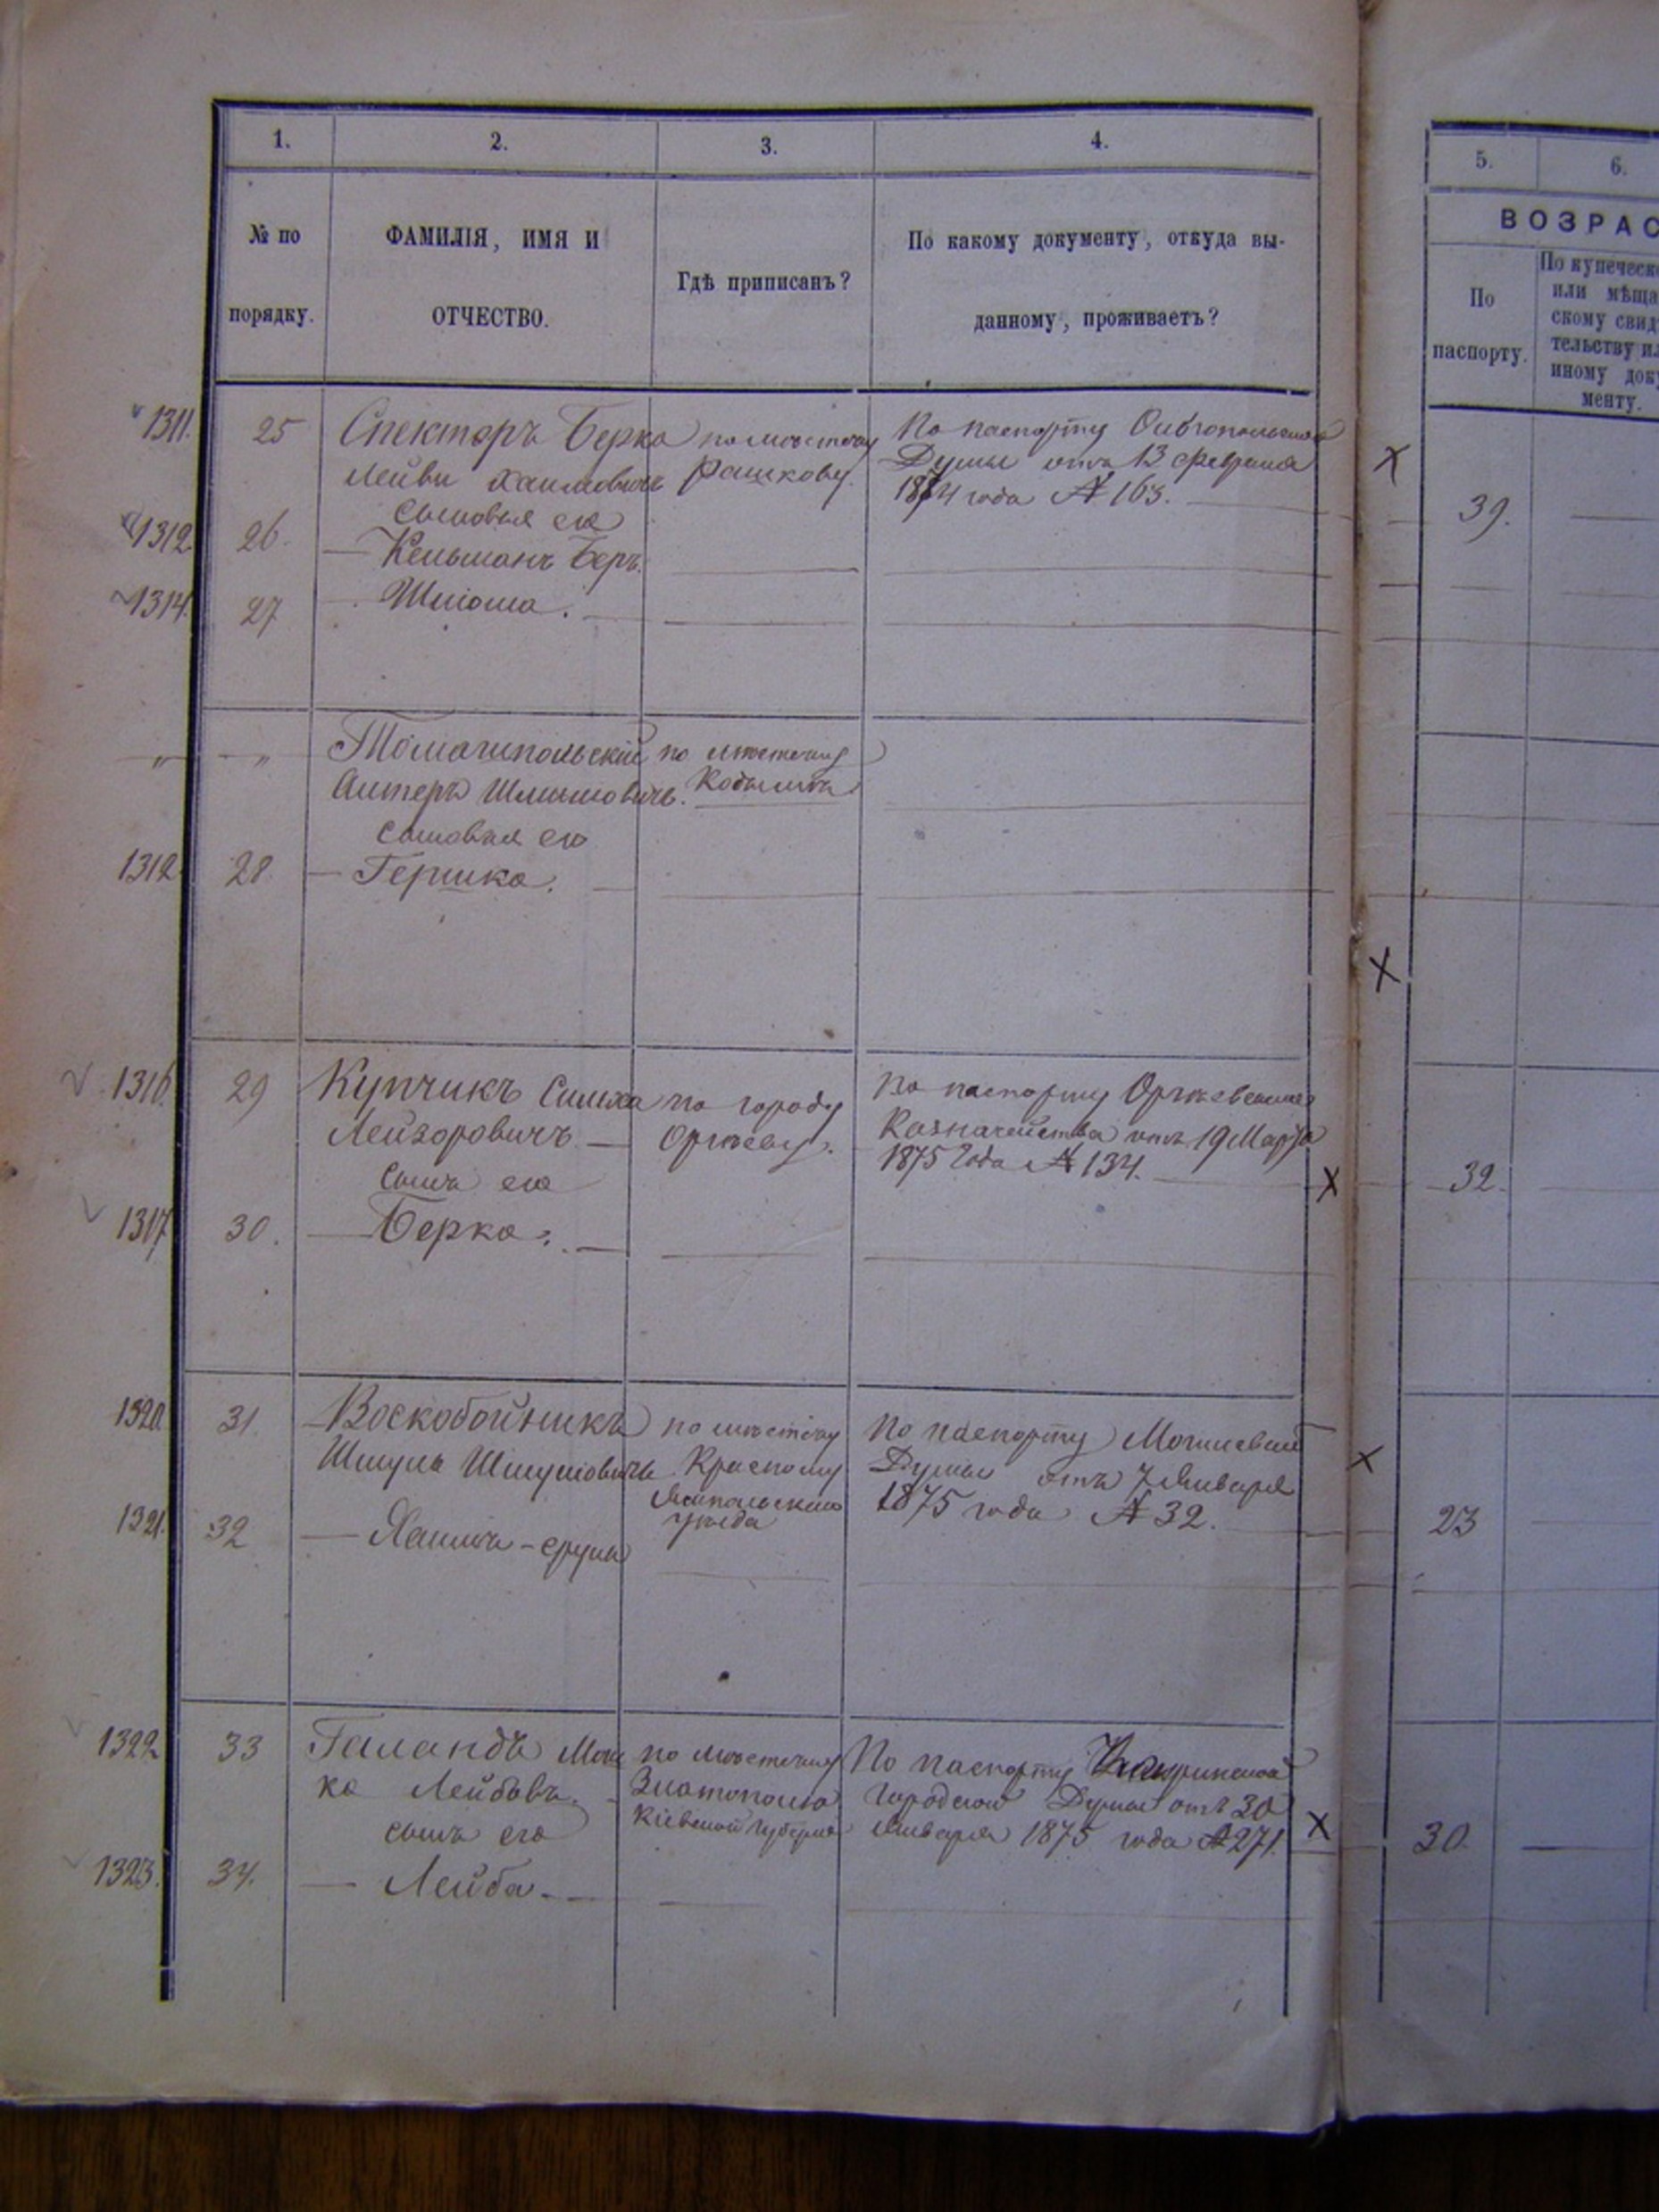 1.
2.
3.
4.
5.
6.
№ по
порядку.
ФАМИЛІЯ, ИМЯ И
ОТЧЕСТВО.
Гдѣ приписанъ?
По какому документу, откуда вы-
данному, проживаетъ?
ВОЗРАС
По
паспорту.
По купеческ
или мѣща
скому свид
тельству ил
иному доку
менту.
1311.
25
Спекторъ Берко
Лейви Хаимовичъ
по мѣстечку
Рашкову.
По паспорту Ольгопольской
Думы отъ 13 февраля
1874 года № 163.
39.
Сыновья его
1312.
26.
Кельманъ Беръ.
1314.
27
Шліома.
„
„
Томашпольскій
Антеръ Шлиомовичъ.
по мѣстечку
Кодыма
сыновья его
1312
28.
Гершко.
1316.
29
Купчикъ Симха
Лейзоровичъ
по городу
Оргѣеву.
По паспорту Оргѣевскаго
Казначейства отъ 19 Марта
1875 года № 134.
32.
Сынъ его
1317
30.
Берко.
1320.
31.
Воскобойникъ
Шмуль Шмулиовичъ
по мѣстечку
Красному
Ямпольскаго
уѣзда
По паспорту Могилевской
Думы отъ 7 Января
1875 года № 32.
23
1321.
32
Хаимъ-сруль
1322
33
Галандъ Мош
ко Лейбовъ.
по мѣстечку
Златополю
Кіевской губерніи
По паспорту Чигиринской
городской Думы отъ 30
Января 1875 года № 271.
30.
сынъ его
1323.
34.
Лейба